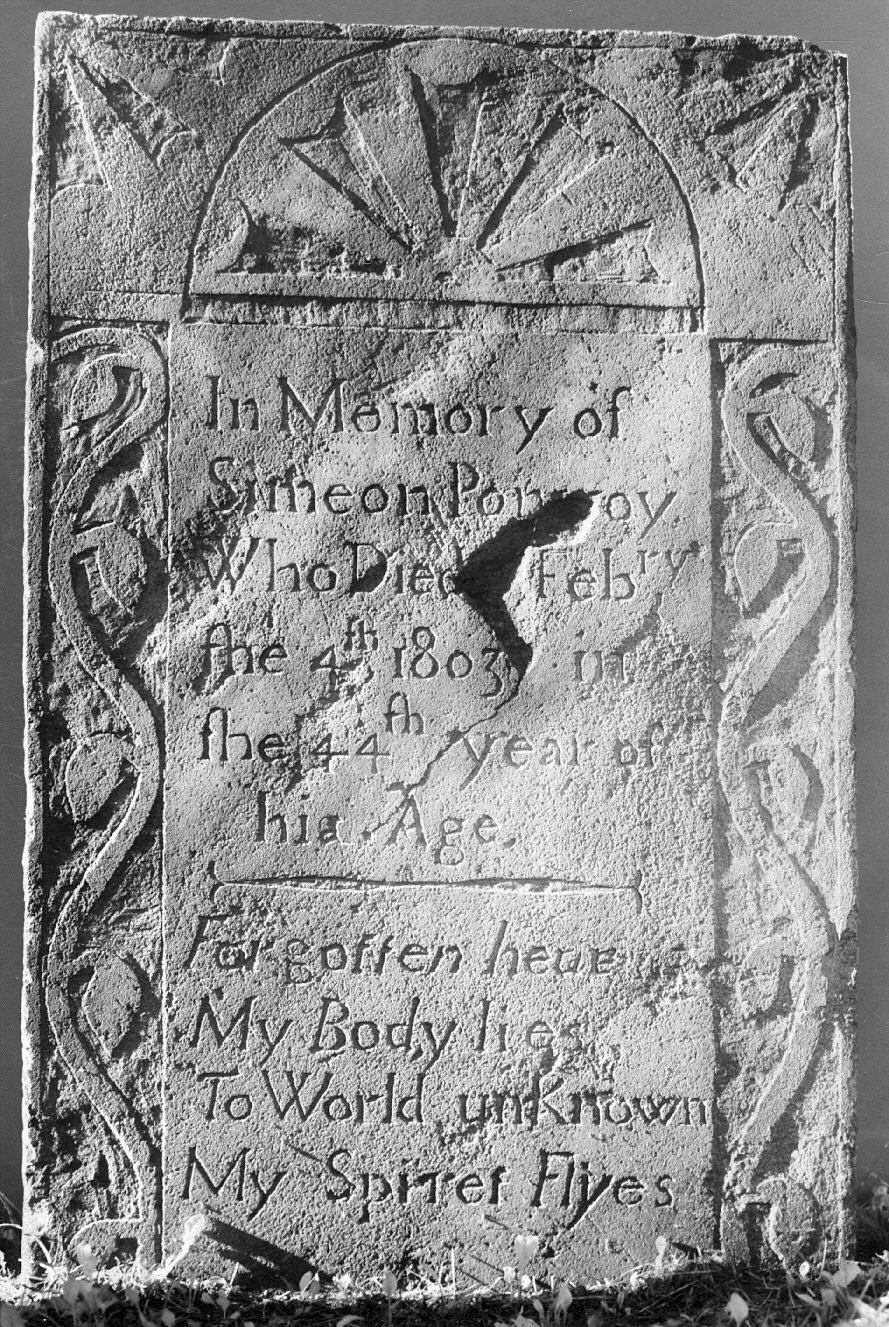 In Memory of
Simeon Pomroy
Who Died Febry
the 4th 1803 in
the 44th year of
his Age.
Forgotten heare
My Body lies
To World unKnown
My Spiret Flyes